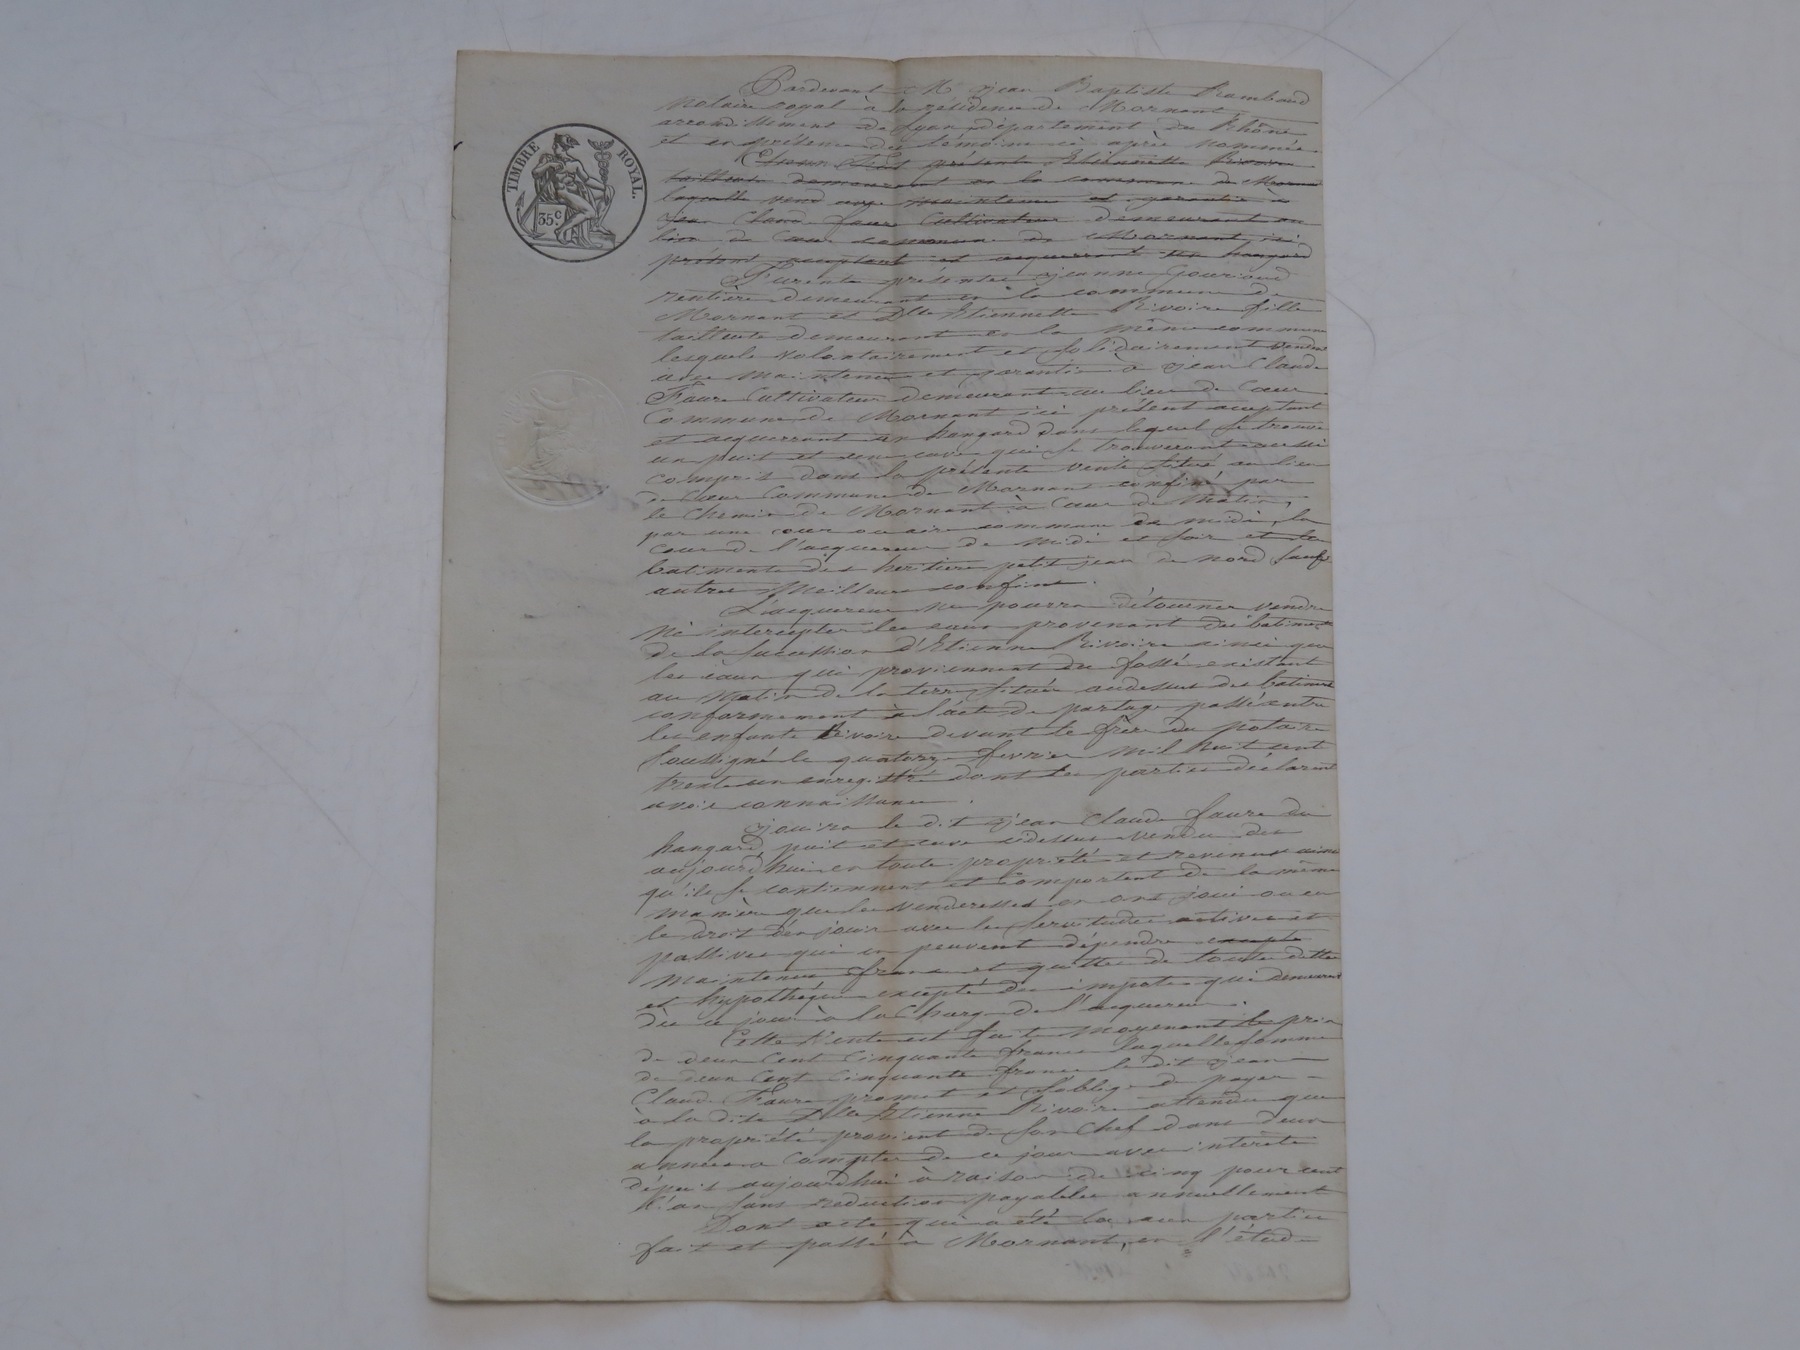 TIMBRE ROYAL.
35 c
Pardevant Me jean Baptiste Rambaud
notaire royal à la résidence de Mornant
arrondissement de Lyon département du Rhône
et en présence des témoins ci après nommés
présente Etiennette Rivoire
tailleuse demeurant en la commune de Mornant
laquelle vend avec maintenue et garantie à
jean Claude faure Cultivateur demeurant au
lieu de Cœur commune de Mornant ici
présent acceptant et acquerrant un hangard
Furent présentes jeanne Gouraud
rentière demeurant en la commune de
Mornant et Dlle Etiennette Rivoire fille
tailleuse demeurant en la même commune
lesquels volontairement et solidairement vendent
avec maintenue et garantie à jean Claude
Faure Cultivateur demeurant au lieu de Cœur
Commune de Mornant ici présent acceptant
et acquerrant un hangard dans lequel se trouve
un puit et une cuve qui se trouveront aussi
compris dans la présente vente situé au lieu
de Cœur Commune de Mornant confiné par
le chemin de Mornant à Cœur de matin,
par une cour ou aire commune de midi, la
cour de l'acquereur de midi et soir et les
batiments des heritiers petit jean de nord sauf
autres meilleurs confins.
L'acquereur ne pourra détourner vendre
ni intercepter les eaux provenant des batiments
de la succession d'Etienne Rivoire ainsi que
les eaux qui proviennent du fossé existant
au matin de la terre située audessus des batiments
conformement à l'acte de partage passé entre
les enfants Rivoire devant le frère du notaire
soussigné le quatorze fevrier mil huit cent
trente un enregistré dont les parties déclarent
avoir connaissance.
jouira le dit jean Claude faure du
hangard, puit et cuve cidessus vendu dès
aujourd'hui en toute propriété et revenus ainsi
qu'ils se contiennent et comportent de la même
manière que les venderesses en ont joui ou eu
le droit d'en jouir avec les servitudes actives et
passives qui en peuvent dépendre excepté
maintenus francs et quittes de toute dette
et hypothéque excepté des impots qui demeurent
dès ce jour à la charge de l'acquereur.
Cette vente est faite moyenant le prix
de deux cent cinquante francs laquelle somme
de deux cent cinquante francs le dit jean
Claude Faure promet et s'oblige de payer
à la dite Dlle Etienne Rivoire attendu que
la propriété provient de son Chef dans deux
années a compter de ce jour avec intérêts
dépuis aujourd'hui à raison de cinq pour cent
l'an sans reduction payables annuellement
Dont acte qui a été lu aux parties
fait et passé à Mornant, en l'étude